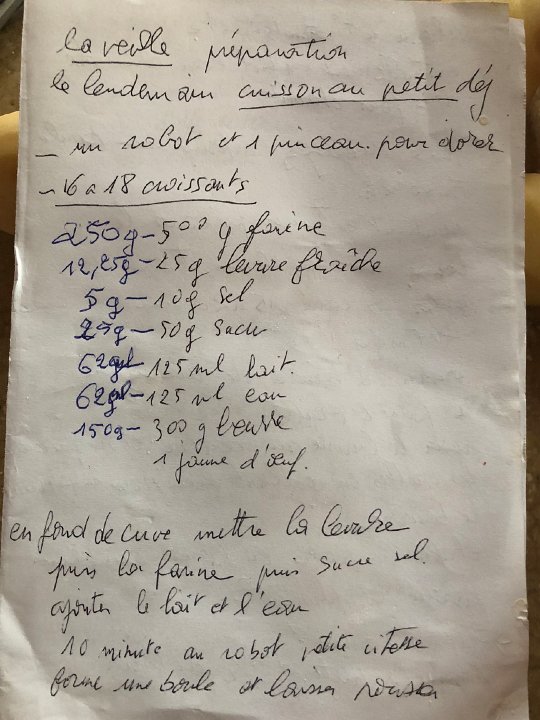 la veille préparation
le lendemain cuisson au petit déj
– un robot et 1 pinceau pour dorer
– 16 a 18 croissants
250g – 500 g farine
12,25g – 25g levure fraîche
5g – 10g sel
25g – 50g sucre
62 – 125 ml lait.
62 – 125 ml eau
150g – 300 g beurre
1 jaune d'œuf.
en fond de cuve mettre la levure
puis la farine puis sucre sel.
ajouter le lait et l'eau
10 minute au robot petite vitesse
forme une boule et laisser